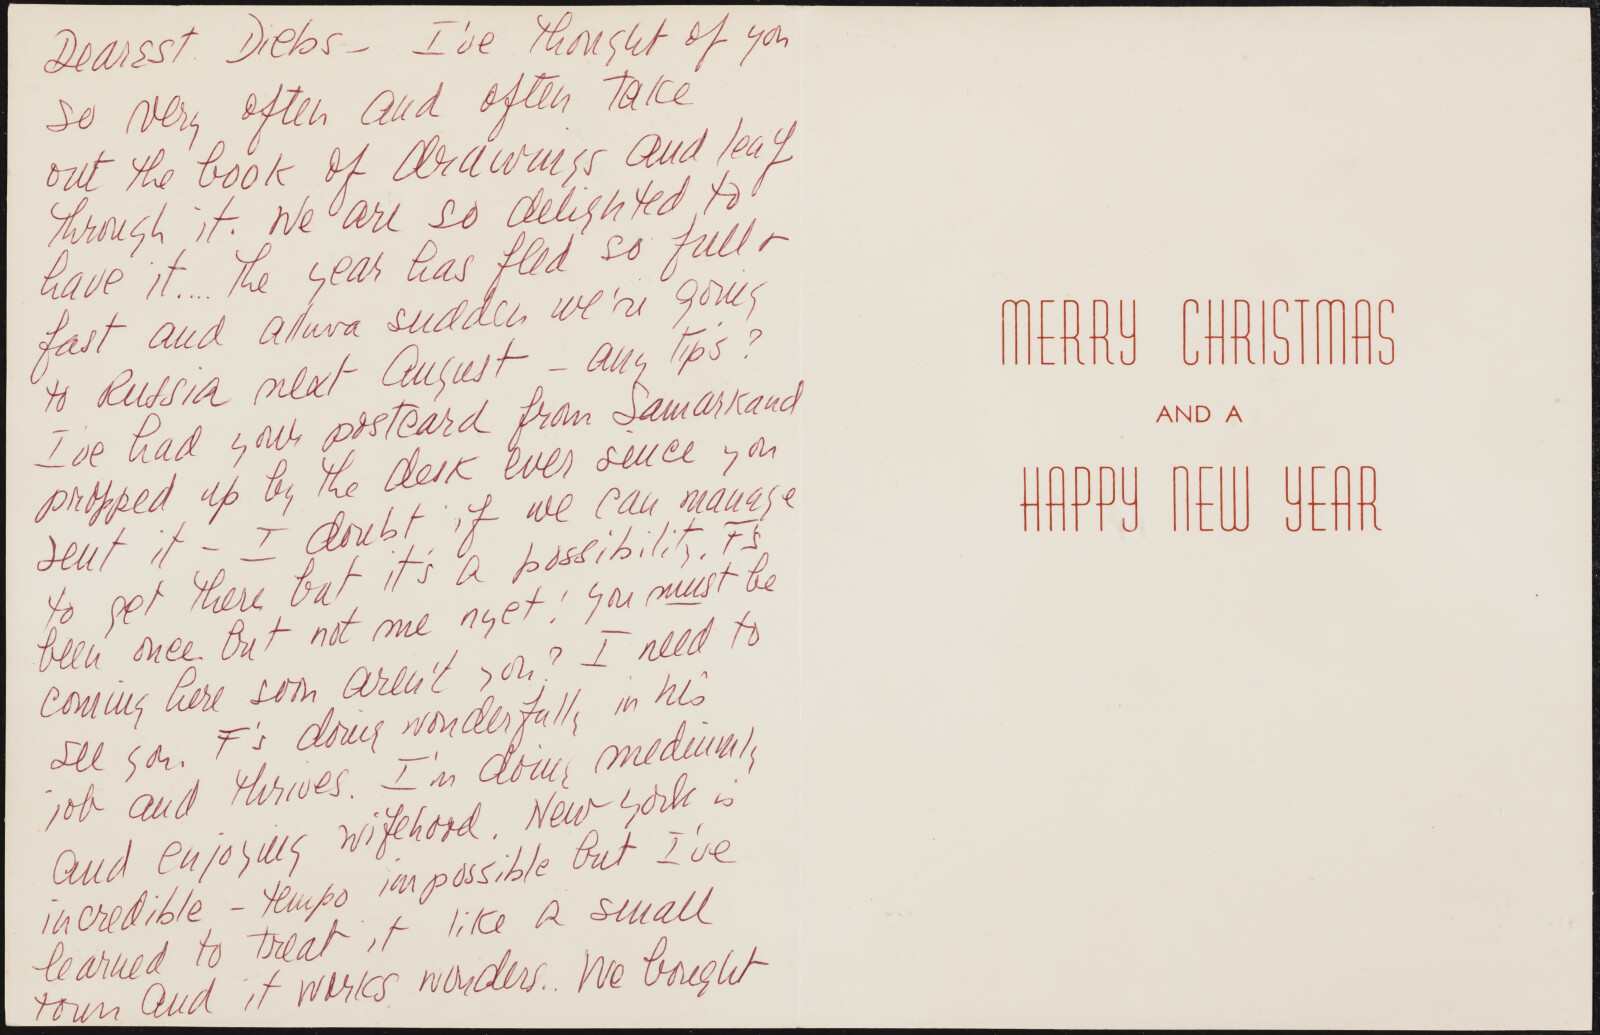 Dearest Diebs – I've thought of you
so very often and often take
out the book of drawings and leaf
through it. We are so delighted to
have it.... The year has fled so full +
fast and alluva sudden we're going
to Russia next August – any tips?
I've had your postcard from Samarkand
propped up by the desk ever since you
sent it – I doubt if we can manage
to get there but it's a possibility. F's
been once but not me nyet! You must be
coming here soon aren't you? I need to
see you. F's doing wonderfully in his
job and thrives. I'm doing mediumly
and enjoying wifehood. New York is
incredible – tempo impossible but I've
learned to treat it like a small
town and it works wonders.. We bought
MERRY CHRISTMAS
AND A
HAPPY NEW YEAR